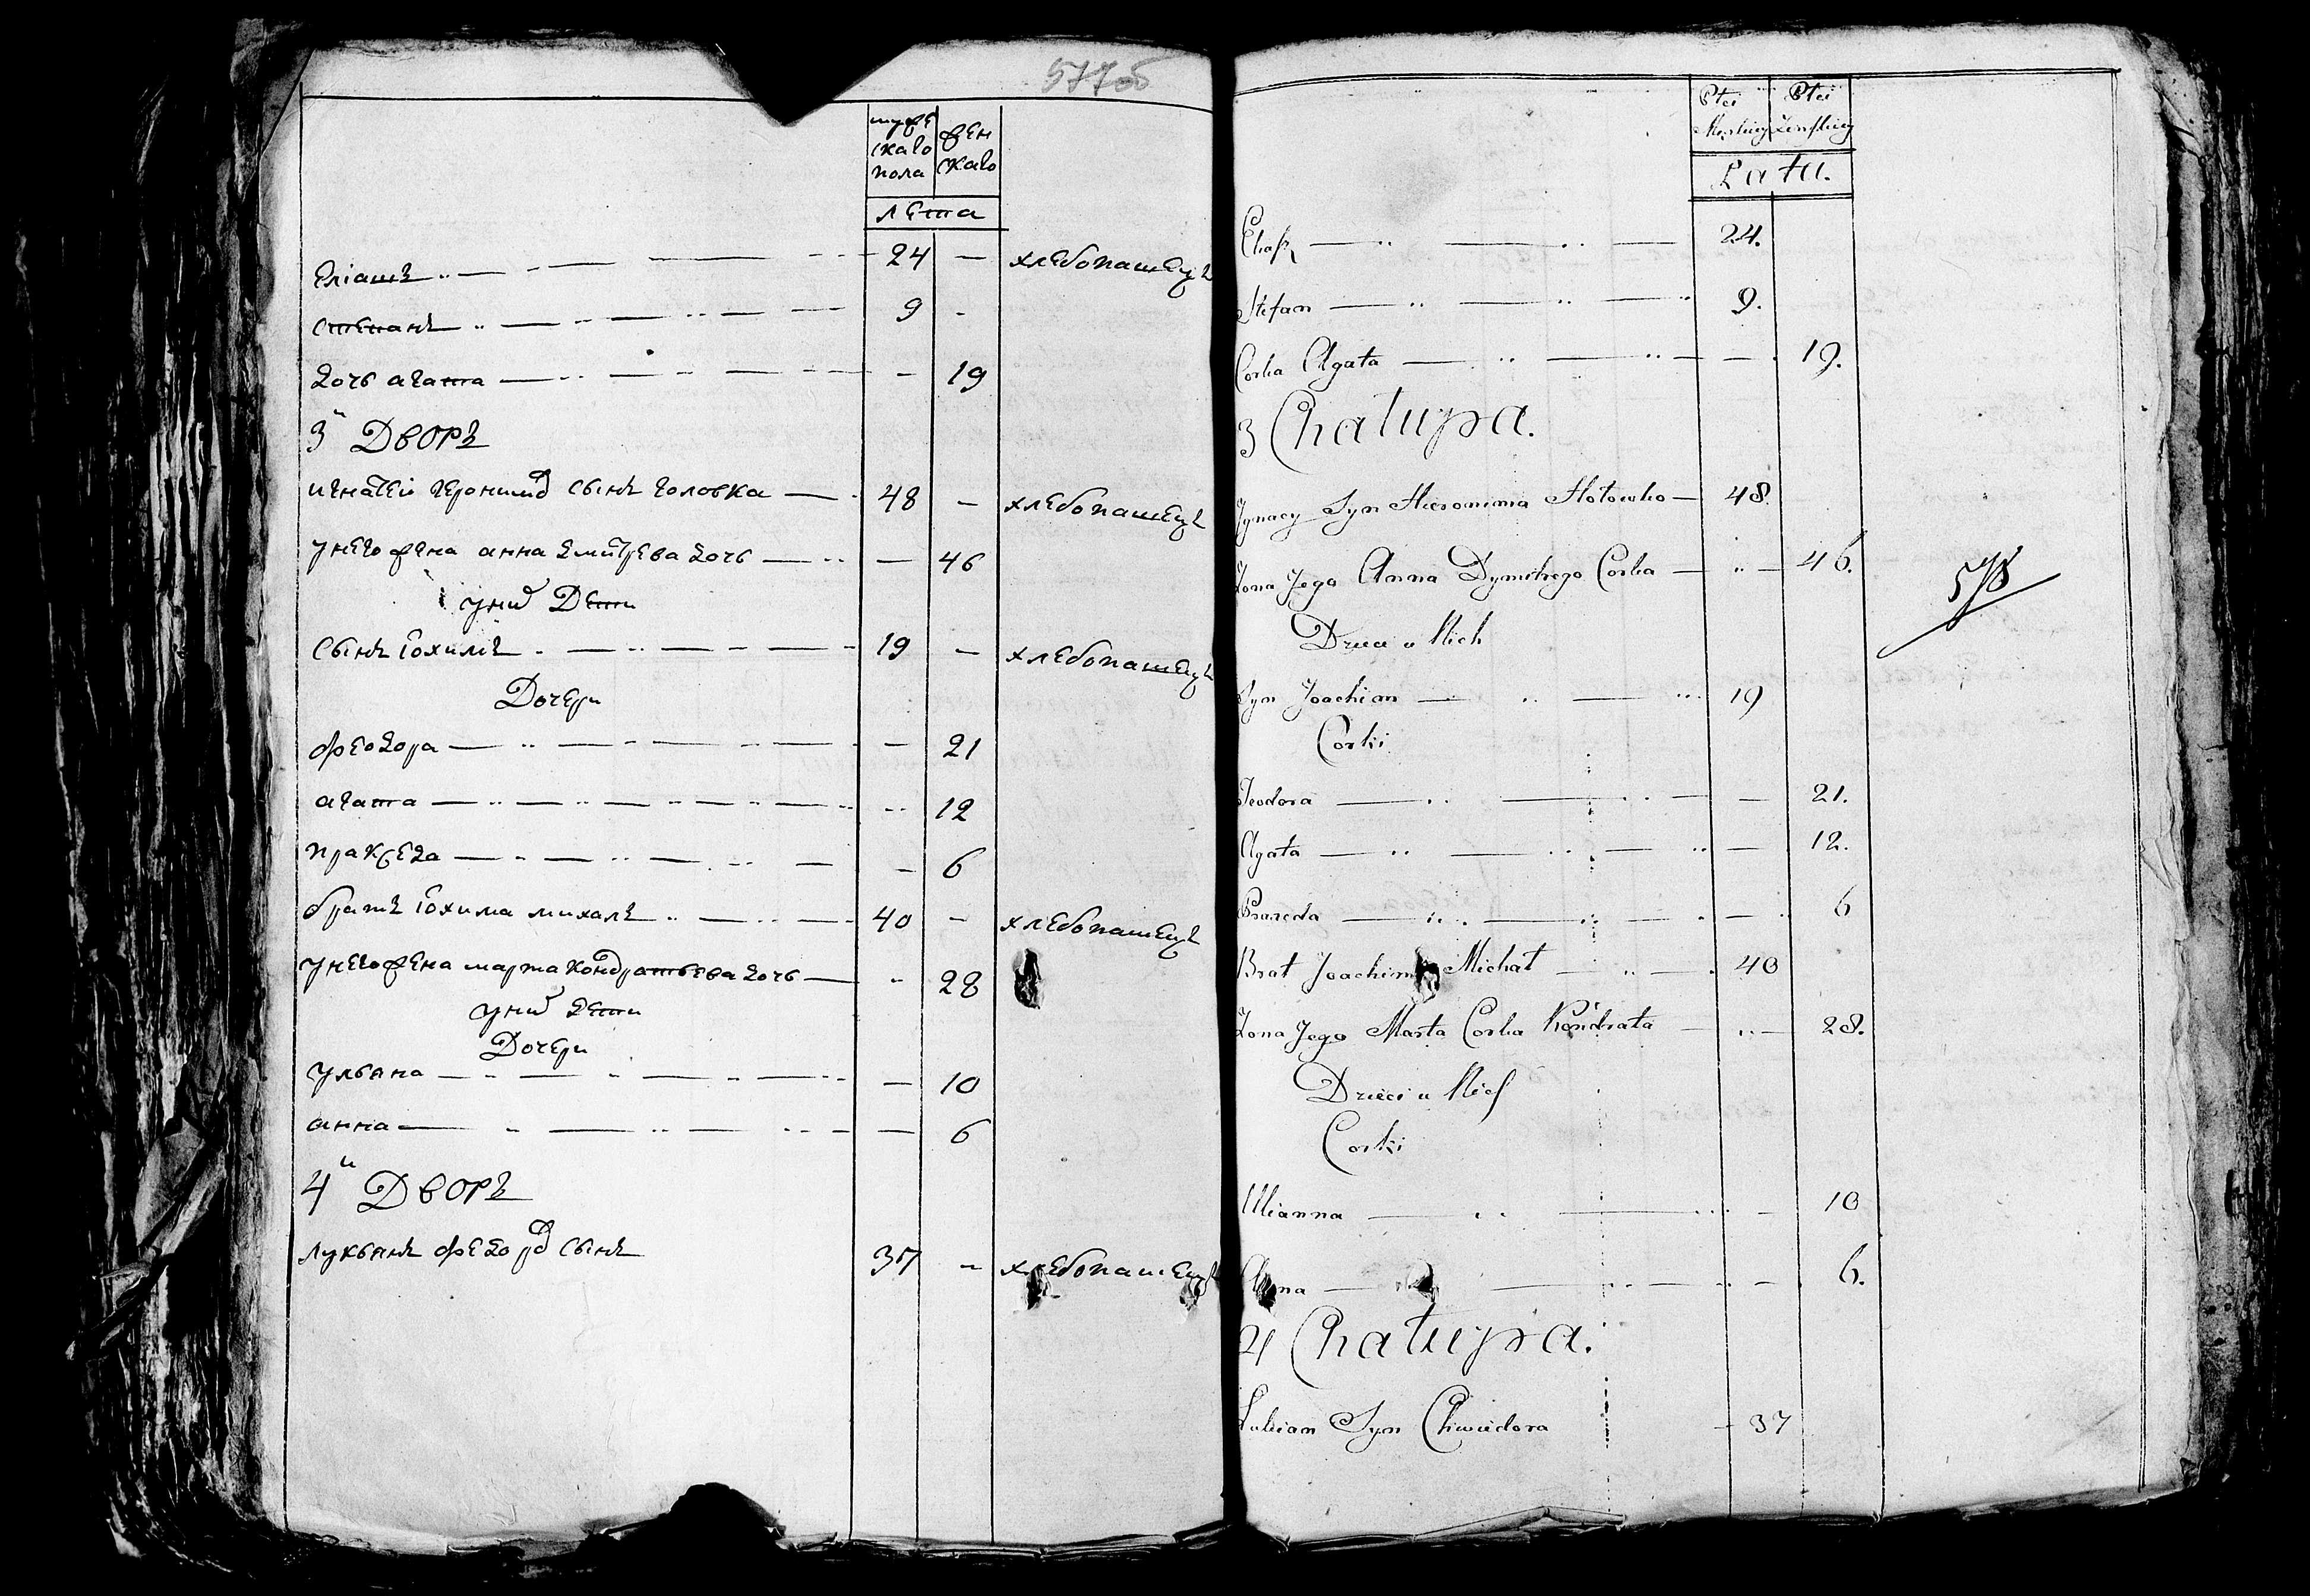 577об
муже
скаго
пола
жен
скаго
лета
еліашъ 24 — хлебопашецъ
степанъ 9 -
дочь агата - 19
3й Дворъ
игнатей геронимов сынъ головка 48 — хлебопашецъ
унего жена анна дмитрева дочь — 46
уних Дети
сынъ іохимъ 19 — хлебопашецъ
Дочери
феодора — 21
агата 12
пракседа - 6
братъ іохима михалъ 40 - хлебопашецъ
унего жена марта кондратьева дочь - 28
уних дети
Дочери
ульяна — 10
анна — 6
4й Дворъ
лукьянъ федоров сынъ 37 - хлебопашецъ
Płci Męskiey
Płci Żenskiey
Lata.
Eliasz 24.
Stefan 9.
Corka Agata 19.
3 Chałupa.
Ignacy Syn Hieronima Hołowko 48.
Żona Jego Anna Dymitrego Corka 46.
578
Dzieci u Nich
Syn Joachim 19
Corki
Teodora — 21.
Agata — 12.
Praxeda — 6
Brat Joachima Michał 40
Żona Jego Marta Corka Kondrata — 28.
Dzieci u Nich
Corki
Ulianna — 10
Anna — 6.
4 Chałupa.
Lukian Syn Chwiedora 37